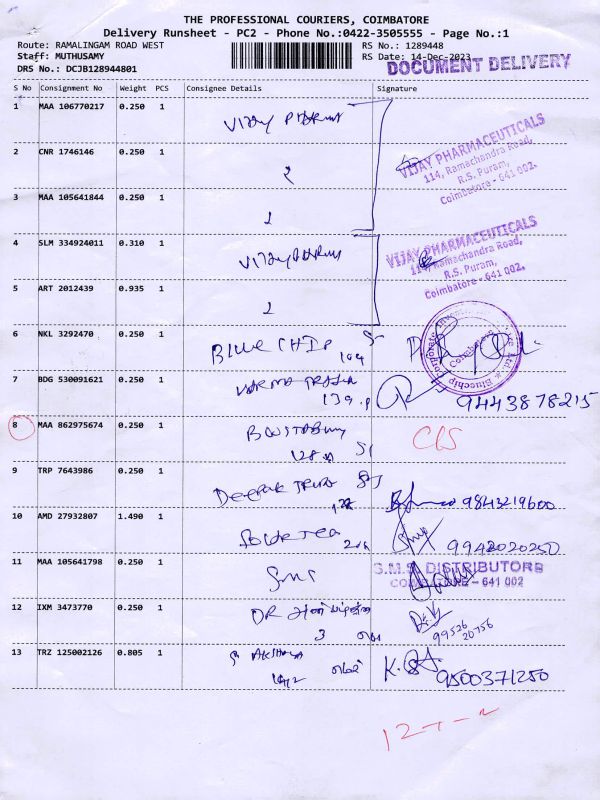 THE PROFESSIONAL COURIERS, COIMBATORE
Delivery Runsheet - PC2 - Phone No.:0422-3505555 - Page No.:1
Route: RAMALINGAM ROAD WEST
RS No.: 1289448
Staff: MUTHUSAMY
RS Date: 14-Dec-2023
DRS No.: DCJB128944801
DOCUMENT DELIVERY
S No Consignment No Weight PCS Consignee Details Signature
1 MAA 106770217 0.250 1
VIJAY PHARMA
VIJAY PHARMACEUTICALS
114, Ramachandra Road,
R.S. Puram,
Coimbatore - 641 002.
2 CNR 1746146 0.250 1
2
3 MAA 105641844 0.250 1
4 SLM 334924011 0.310 1
VIJAY PHARMA
VIJAY PHARMACEUTICALS
114, Ramachandra Road,
R.S. Puram,
Coimbatore - 641 002.
5 ART 2012439 0.935 1
2
6 NKL 3292470 0.250 1
BLUE CHIP
7 BDG 530091621 0.250 1
139
9443878215
8 MAA 862975674 0.250 1
128
9 TRP 7643986 0.250 1
DEEPAK
9843219600
10 AMD 27932807 1.490 1
9942020250
11 MAA 105641798 0.250 1
SMS
S.M.S. DISTRIBUTORS
COIMBATORE - 641 002
12 IXM 3473770 0.250 1
DR
3
99526
20756
13 TRZ 125002126 0.805 1
AKSHAYA
9500371250